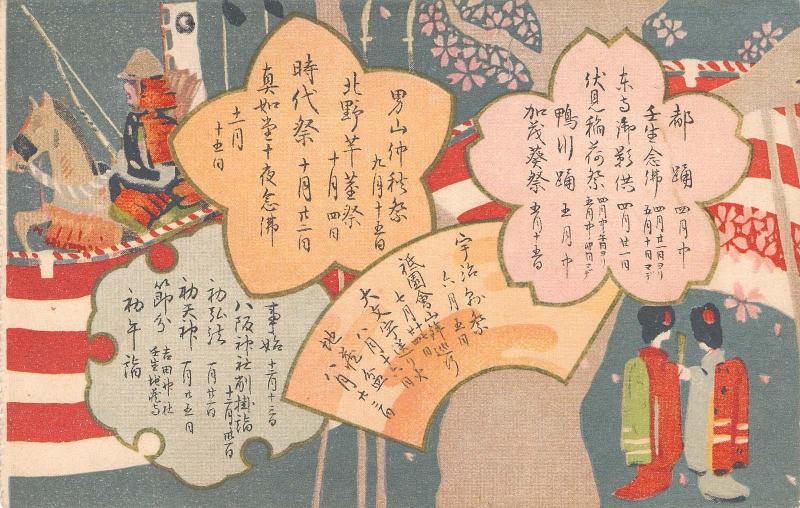 都踊 四月中
壬生念佛 四月廿一日ヨリ 五月十日マデ
東寺御影供 四月廿一日
伏見稲荷祭
鴨川踊 五月中
加茂葵祭 五月十五日
男山仲秋祭 九月十五日
北野芋莖祭 十月四日
時代祭 十月廿二日
真如堂十夜念佛
十一月
十五日
宇治縣祭
六月五日
祇園會山鉾巡行
七月十七日 廿四日
大文字送り火
八月十六日
地蔵盆
八月廿三日
事始 十二月十三日
八阪神社削掛詣
十二月卅一日
初弘法 一月廿一日
初天神 一月廿五日
節分 吉田神社
壬生地蔵寺
初午詣